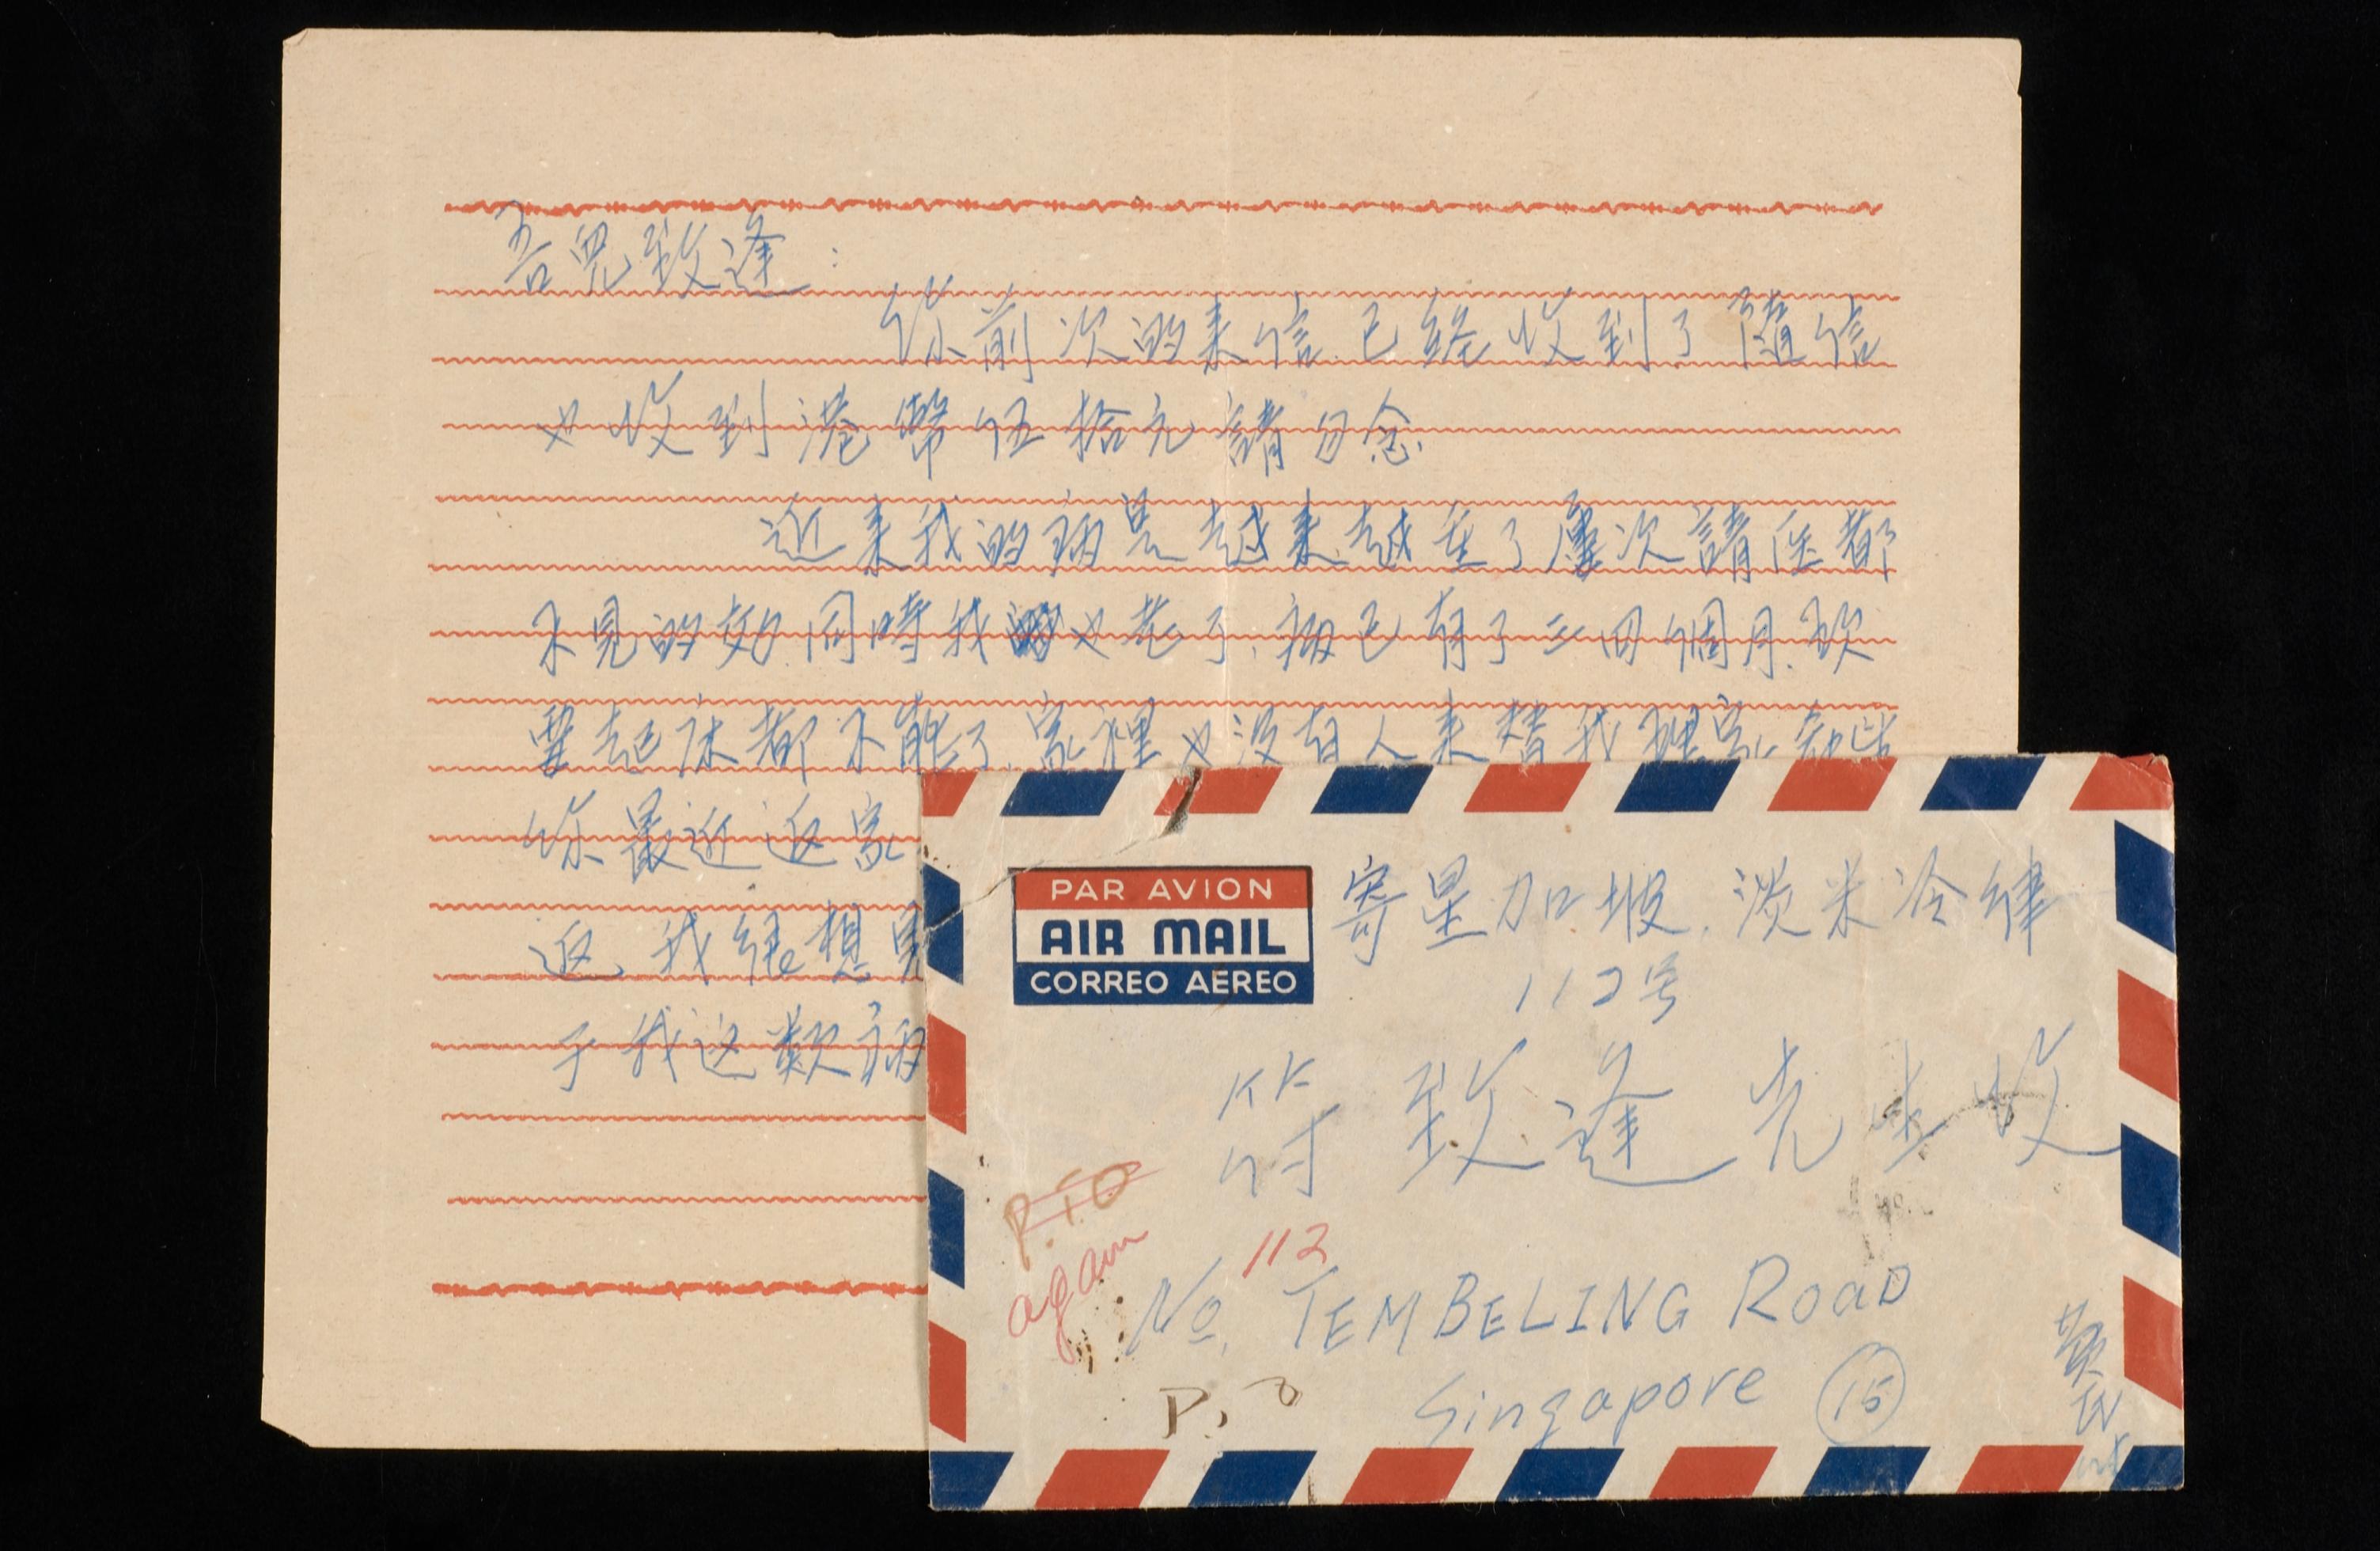 吾兒致逢：
你前次的来信.已経收到了隨信
也收到港幣伍拾元請勿念.
近来我的病是越来越重了屢次請医都
不見的効.同時我也老了.病已有了三四個月.欲
要起床都不能了.家裡也没有人来替我理家.
你最近返家
返.我很想
于我这欵病
PAR AVION
AIR MAIL
CORREO AEREO
寄星加坡.淡米冷律
112号
符致逢先生收
P.T.O
again
112
No. TEMBELING ROAD
Singapore 15
P.